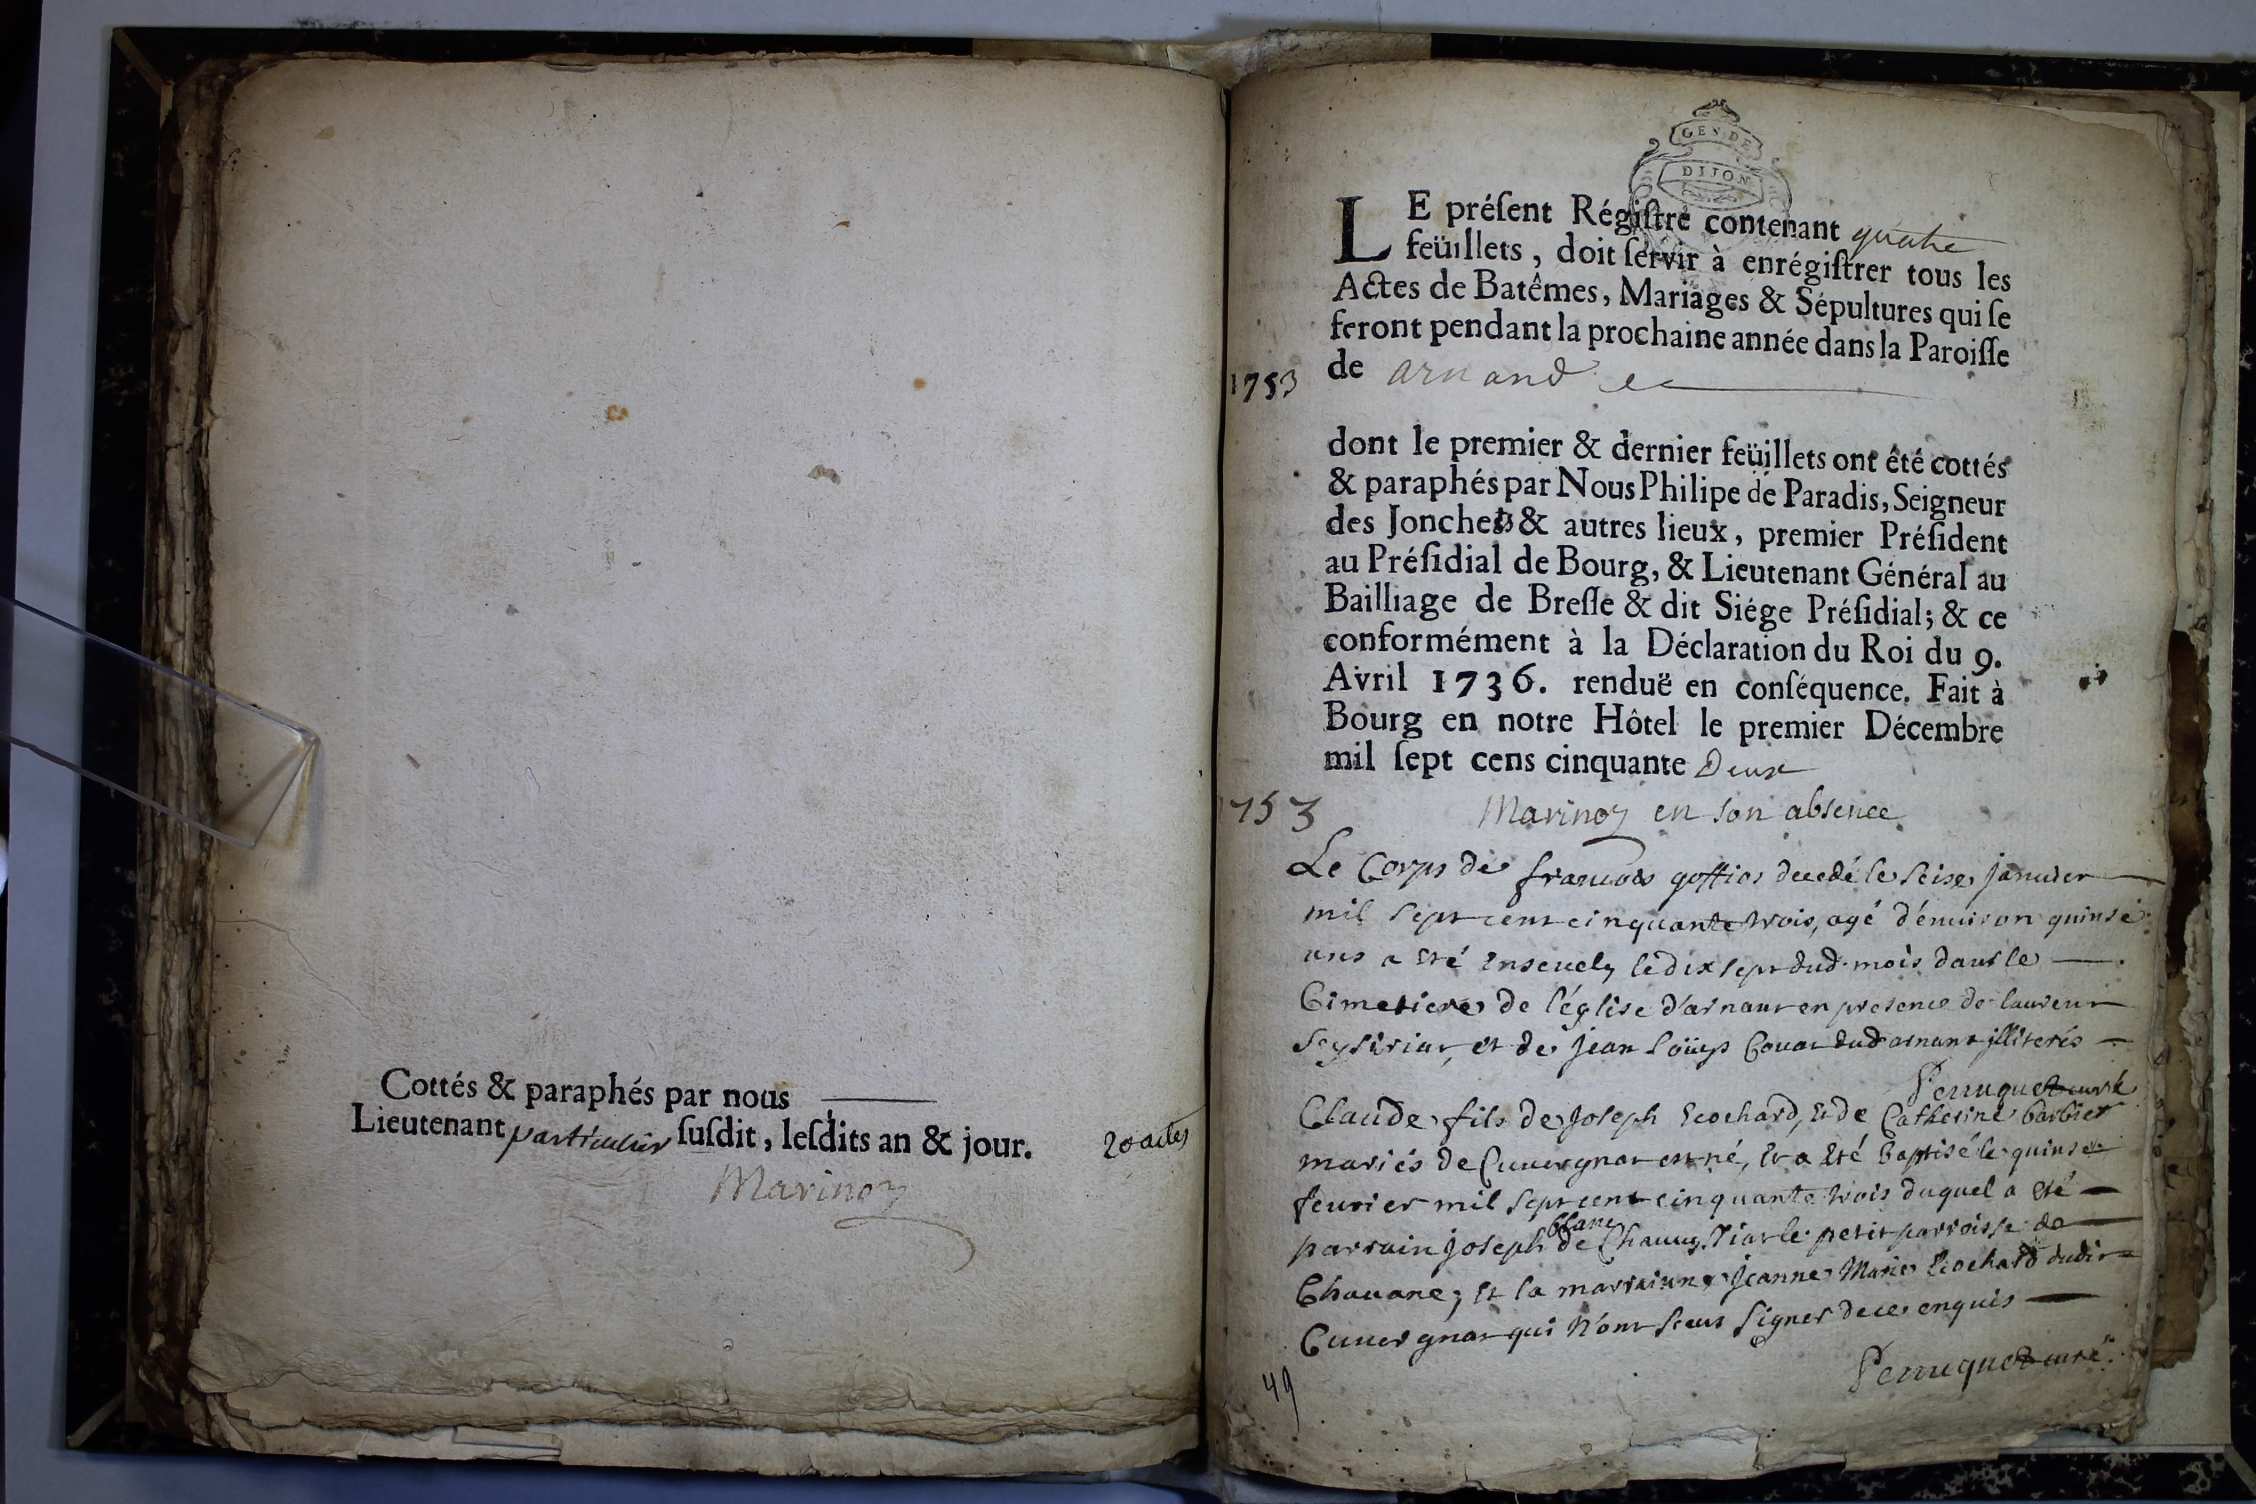 Cottés & paraphés par nous
Lieutenant particulier ſuſdit, leſdits an & jour.
20 actes
Marinoz
GEN. DE
DIJON
LE préſent Régiſtre contenant quatre
feüillets, doit ſervir à enrégiſtrer tous les
Actes de Batêmes, Mariages & Sépultures qui ſe
feront pendant la prochaine année dans la Paroiſſe
de arnand
1753
dont le premier & dernier feüillets ont été cottés
& paraphés par Nous Philipe de Paradis, Seigneur
des Jonchets & autres lieux, premier Préſident
au Préſidial de Bourg, & Lieutenant Général au
Bailliage de Breſſe & dit Siége Préſidial; & ce
conformément à la Déclaration du Roi du 9.
Avril 1736. renduë en conſéquence. Fait à
Bourg en notre Hôtel le premier Décembre
mil ſept cens cinquante Deux
753
Marinoz en son absence
Le Corps de francois decedé le seise janvier
mil sept cent cinquante trois, agé d'environ quinse
ans a eté ensevely le dix sept dud. mois dans le
Cimetiere de l'église d'arnant en presence de laurent
et de jean loüys dud arnant illiterés
Perruquet curé
Claude fils de joseph Ecochard, et de Catherine barbier
mariés de Cuvergnat est né, et a eté baptisé le quinse
fevrier mil sept cent cinquante trois duquel a eté
parrain joseph blanc de le petit parroisse de
Chavane; et la marrainne jeanne Marie Ecochard dudit
Cuvergnat qui n'ont sceut signer de ce enquis
Perruquet curé
49